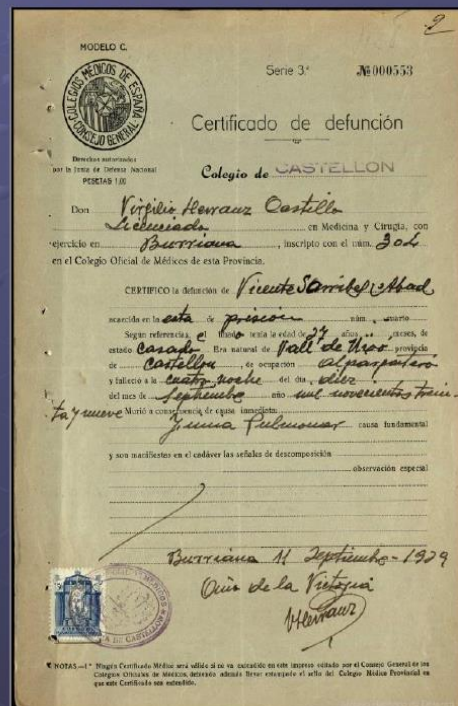 2
MODELO C.
COLEGIOS MÉDICOS DE ESPAÑA
CONSEJO GENERAL
Serie 3.ª № 000553
Certificado de defunción
Derechos autorizados
por la Junta de Defensa Nacional
PESETAS 1,00
Colegio de CASTELLON
Don Virgilio Herranz Castillo
Licenciado en Medicina y Cirugía, con
ejercicio en Burriana, inscripto con el núm. 304
en el Colegio Oficial de Médicos de esta Provincia.
CERTIFICO la defunción de Vicente Abad
acaecida en la esta de prisión núm. cuarto
Según referencias, el finado tenía la edad de 37 años meses, de
estado Casado Era natural de Vall de Uxó provincia
de Castellon, de ocupación alpargatero
y falleció a la cuatro noche del día diez
del mes de Septiembre año mil novecientos trein-
ta y nueve Murió a consecuencia de causa inmediata
Pulmonar causa fundamental
y son manifiestas en el cadáver las señales de descomposición
observación especial
Burriana 11 Septiembre - 1939
Año de la Victoria
VHerranz
NOTAS.—1.ª Ningún Certificado Médico será válido si no va extendido en este impreso editado por el Consejo General de los
Colegios Oficiales de Médicos, debiendo además llevar estampado el sello del Colegio Médico Provincial en
que este Certificado sea extendido.